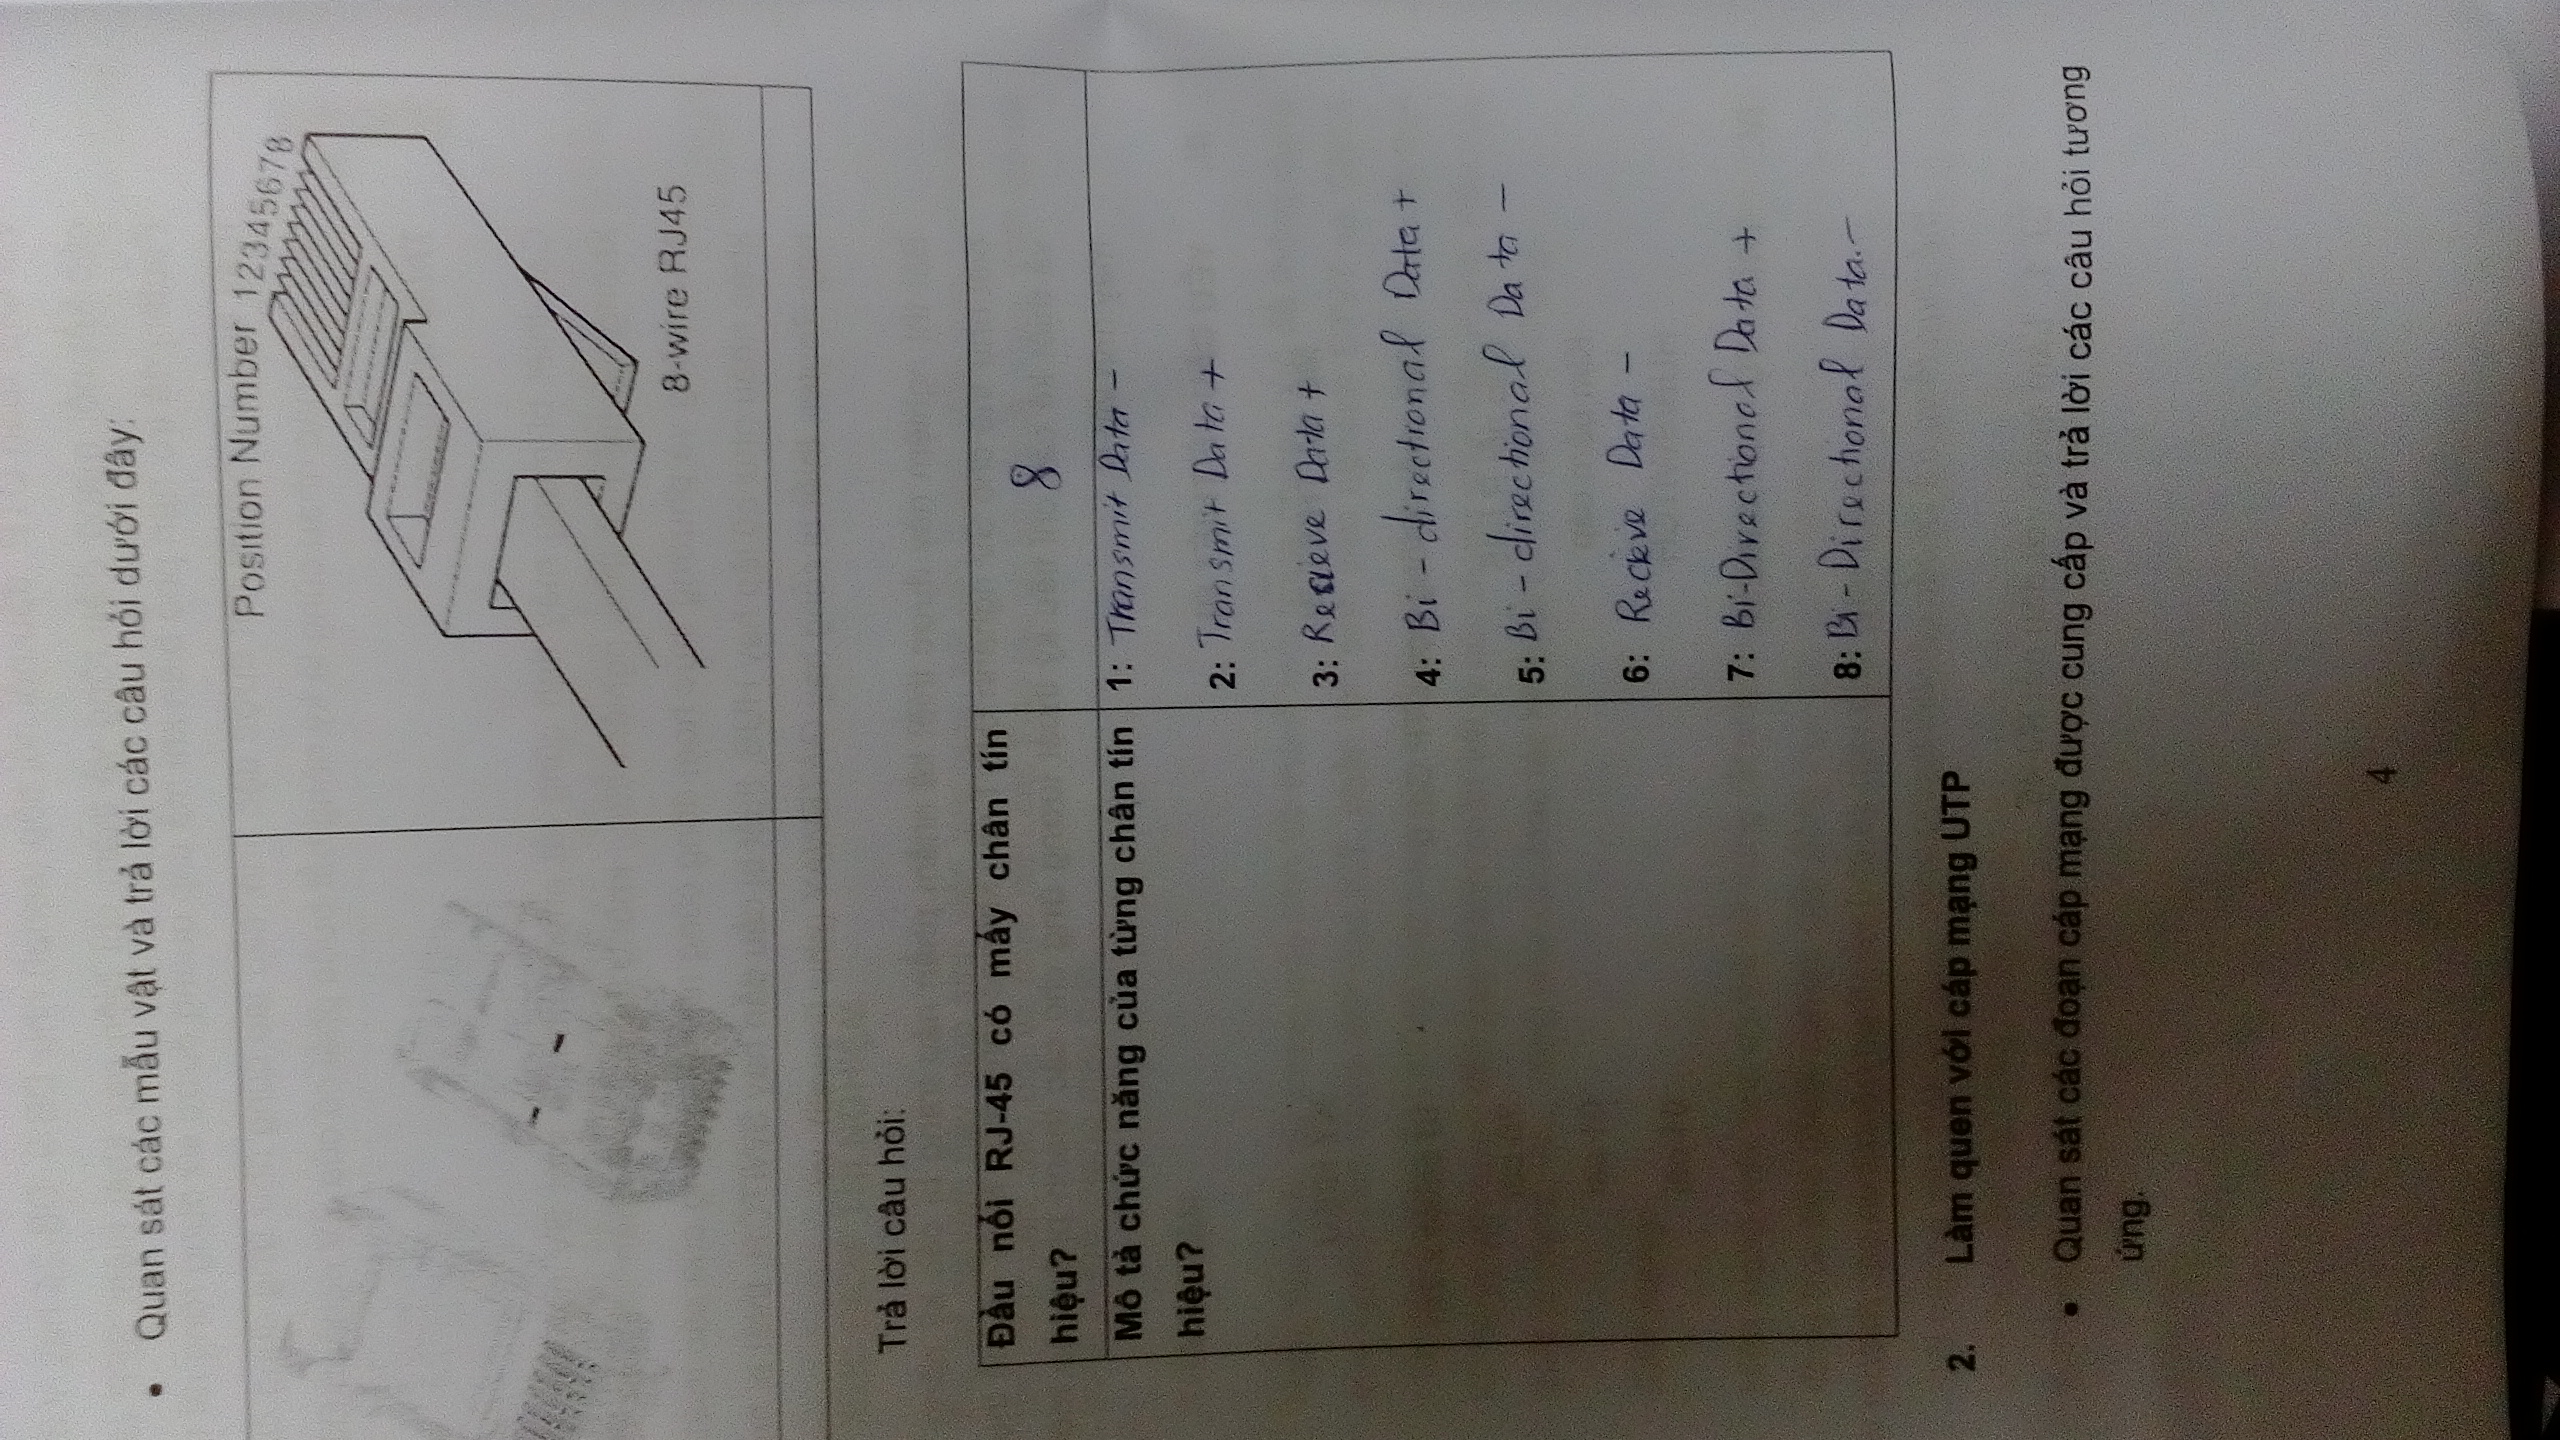 • Quan sát các mẫu vật và trả lời các câu hỏi dưới đây:
Position Number 12345678
8-wire RJ45
Trả lời câu hỏi:
Đầu nối RJ-45 có mấy chân tín
hiệu?
8
Mô tả chức năng của từng chân tín
hiệu?
1: Transmit Data -
2: Transmit Data +
3: Recieve Data +
4: Bi - directional Data +
5: Bi - directional Data -
6: Recieve Data -
7: Bi-Directional Data +
8: Bi - Directional Data. -
2. Làm quen với cáp mạng UTP
• Quan sát các đoạn cáp mạng được cung cấp và trả lời các câu hỏi tương
ứng.
4